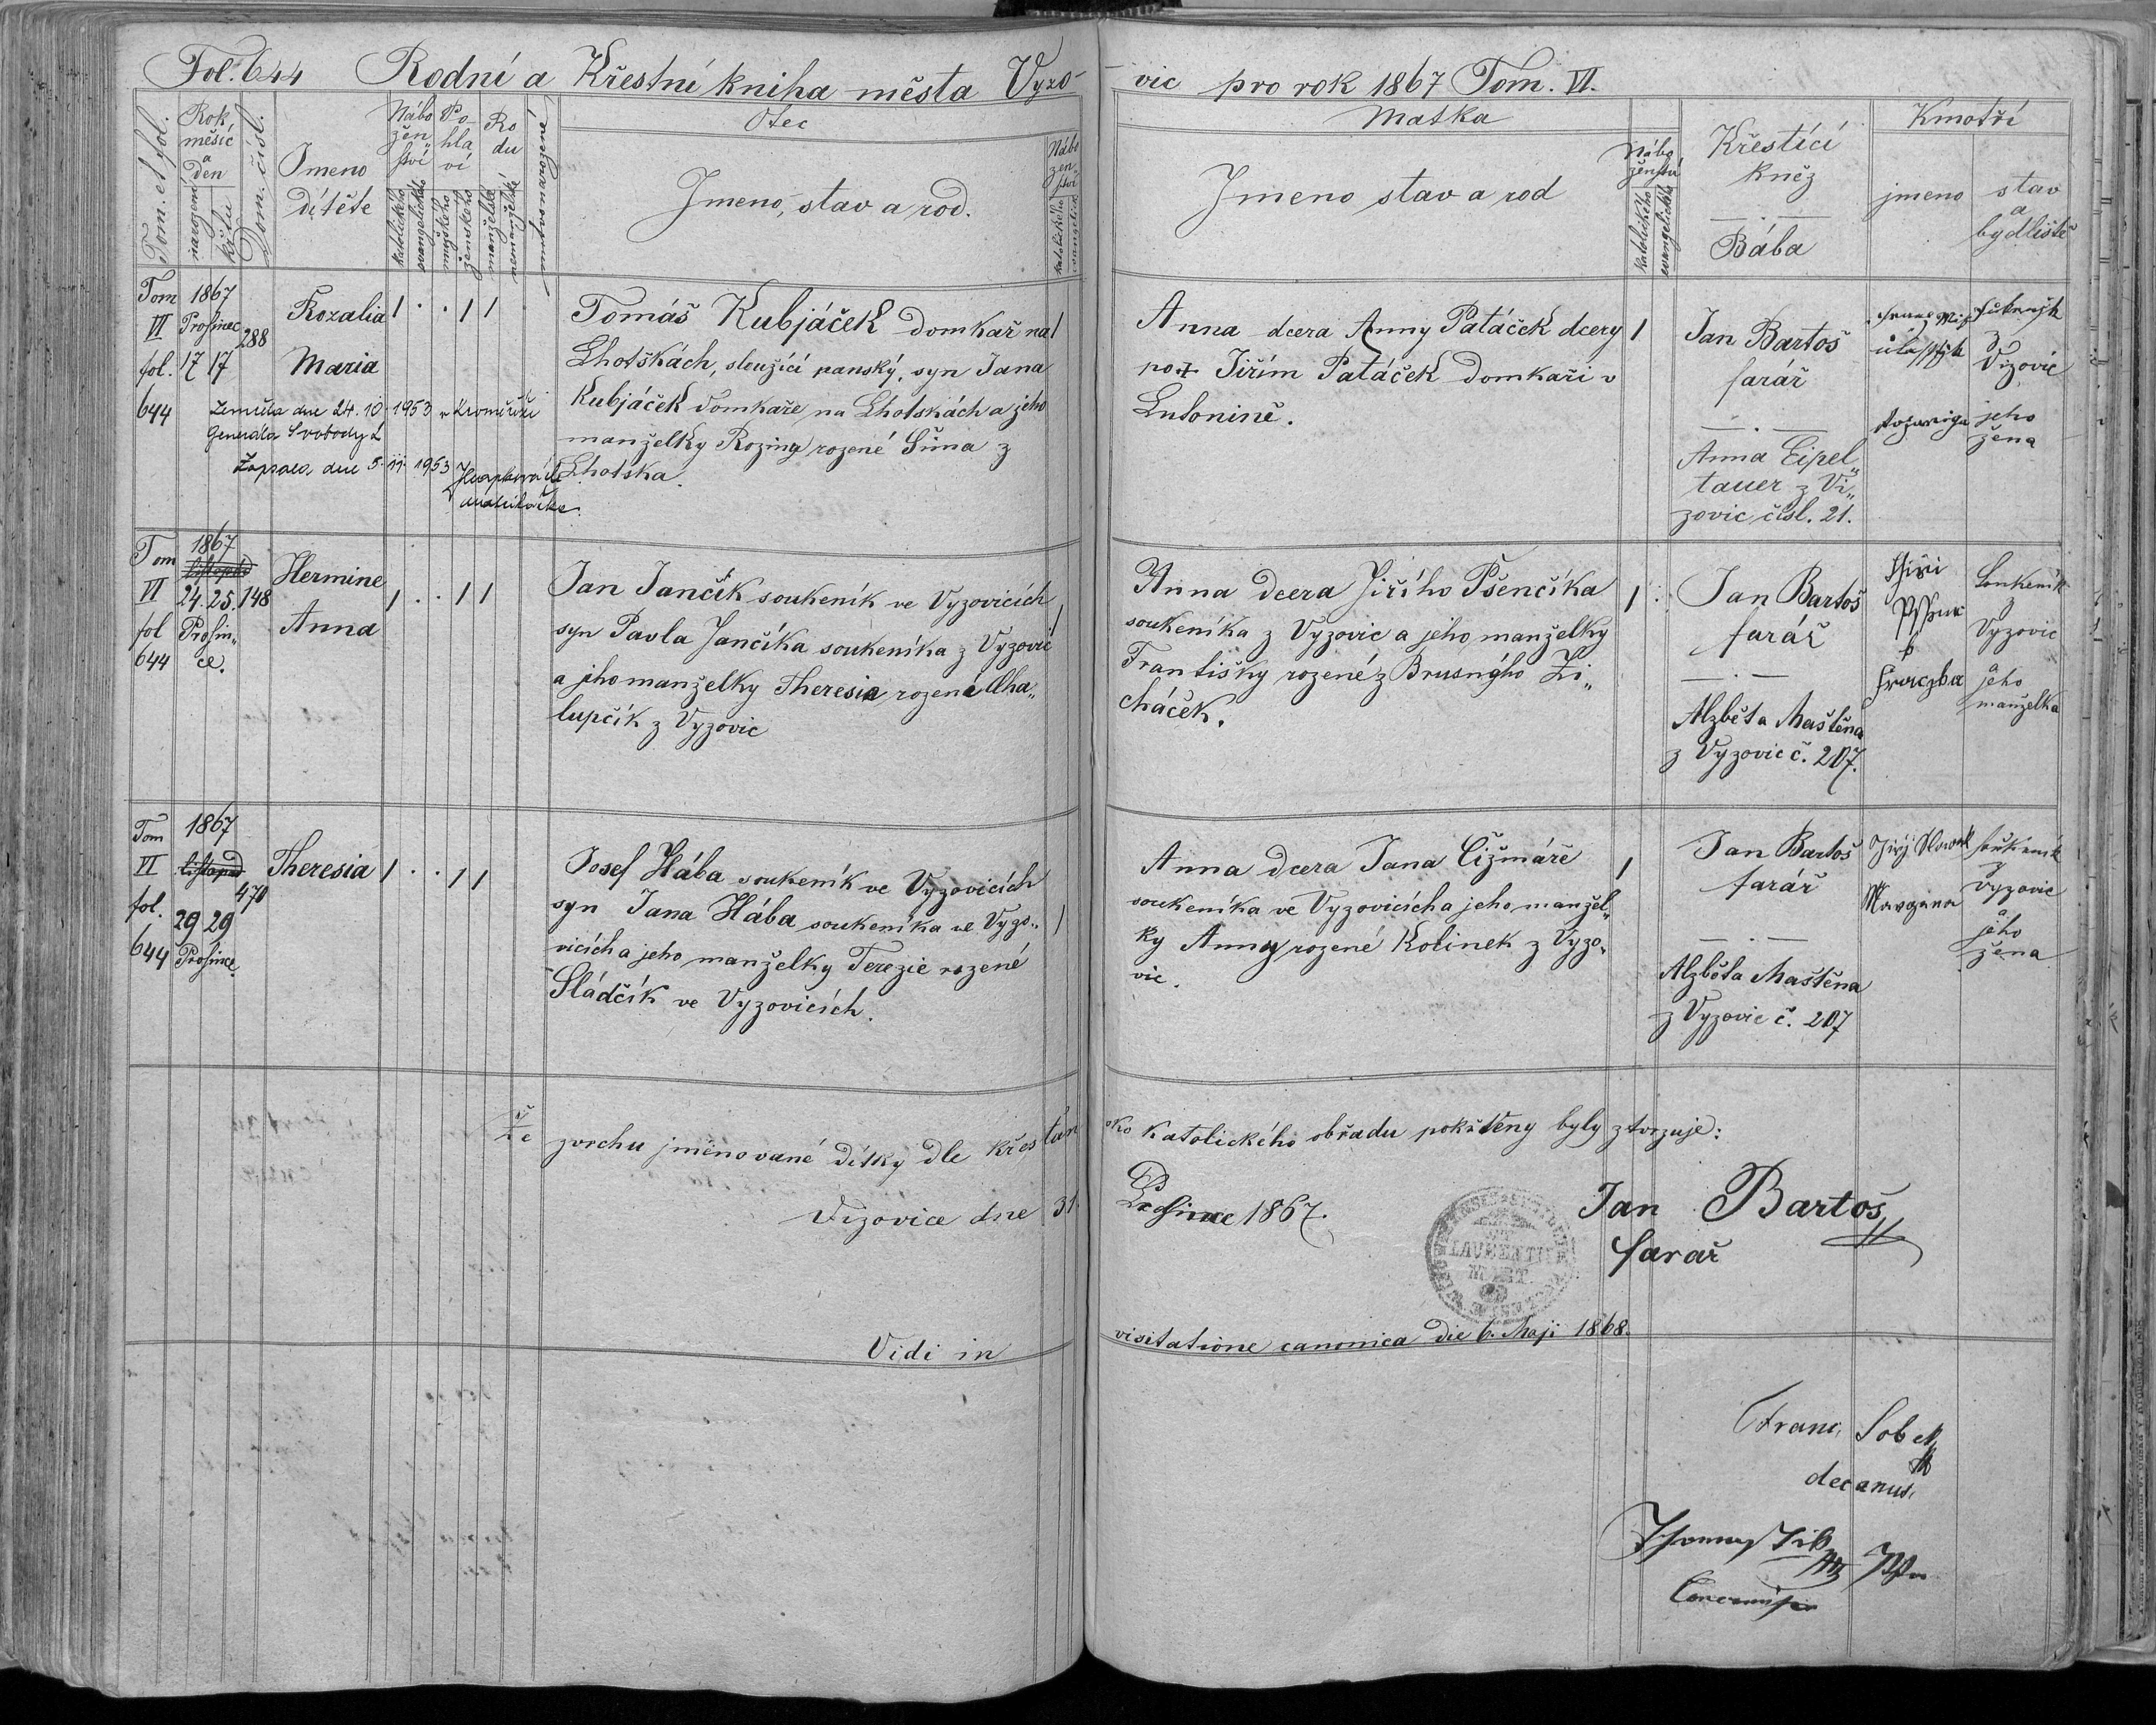 Fol. 644 Rodní a Křestní kniha města Vyzo-
vic pro rok 1867 Tom. VI.
Tom. et fol.
Rok, měsíc a den
narození
křtu
Dom. čísl.
Jmeno
dítěte
Nábo
žen„
ství
katolického
evangelického
Po-
hla
ví
mužského
ženského
Ro
du
manželské
nemanželské
mrtvo narozené
Otec
Jmeno, stav a rod.
Nábo
žen„
ství
katolického
evangelick
Matka
Jmeno stav a rod
Nábo
ženství
katolického
evangelického
Křestící
kněz
Bába
Kmotři
jmeno
stav
a
bydliště
Tom
VI
fol.
644
1867
Prosinec
17 17
288
Rozalia
Maria
1 . . 1 1
Zemřela dne 24. 10. 1953 v Kroměříži
Generála Svobody
Zapsala dne 5. 11. 1953
matrikářka.
Tomáš Kubjáček domkař na
Lhotskách, sloužící panský, syn Jana
Kubjáček domkaře na Lhotskách a jeho
manželky Roziny rozené Šima z
Lhotska.
1
Anna dcera Anny Patáček dcery
po Jiřím Patáček domkaři v
Lutonině.
1
Jan Bartoš
farář
Anna Eipel„
tauer z Vi„
zovic čísl. 21.
z
Vizovic
jeho
žena
Tom
VI
fol
644
1867
listopad
24. 25. 148
Prosin„
ce.
Hermine
Anna
1 . . 1 1
Jan Jančík soukeník ve Vyzovicích
syn Pavla Jančíka soukeníka z Vyzovic
a jeho manželky Theresie rozené Cha„
lupčík z Vyzovic
1
Anna dcera Jiřího Pšenčíka
soukeníka z Vyzovic a jeho manželky
Františky rozené z Brusného Zi„
cháček.
1
Jan Bartoš
farář
Alzběta Maštěna
z Vyzovic č. 207.
Soukeník
z
Vyzovic
a
jeho
manželka
Tom
VI
fol.
644
1867
listopad
470
29 29
Prosince
Theresia
1 . . 1 1
Josef Hába soukeník ve Vyzovicích
syn Jana Hába soukeníka ve Vyzo„
vicích a jeho manželky Terezie rozené
Sládčík ve Vyzovicích.
1
Anna dcera Jana Čižmáře
soukeníka ve Vyzovicích a jeho manžel„
ky Anny rozené Kolinek z Vyzo„
vic.
1
Jan Bartoš
farář
Alzběta Maštěna
z Vyzovic č. 207
Jiří
soukeník
z
Vyzovic
a
jeho
žena
Že zvrchu jměnované dítky dle křesťan
sko katolického obřadu pokřtěny byly ztvrzuje:
Vizovice dne 31.
Prosince 1867.
LAURENTII
MART.
Jan Bartoš
farář
Vidi in
visitatione canonica die 6. Maji 1868.
Franc. Sobek
decanus.